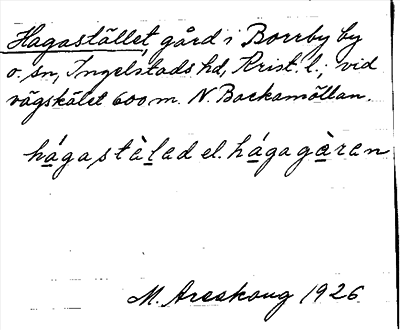 Hagastället, gård i Borrby by
o. sn, Ingelstads hd, Krist. l.; vid
vägskälet 600 m. N. Backamöllan.
hágastàlad el. hágagàran
M. Areskoug 1926.